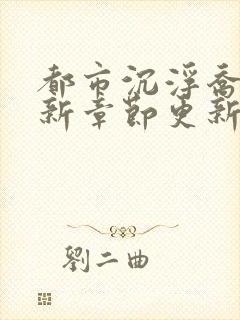 都市沉浮乔
新章节更新
劉二曲